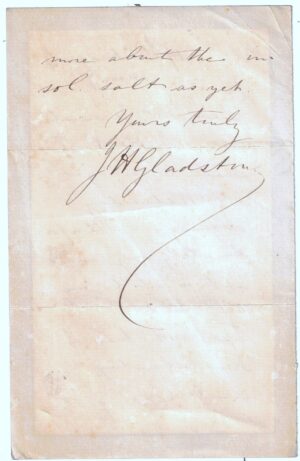 more about the in
sol. salt as yet
Yours truly
JHGladstone